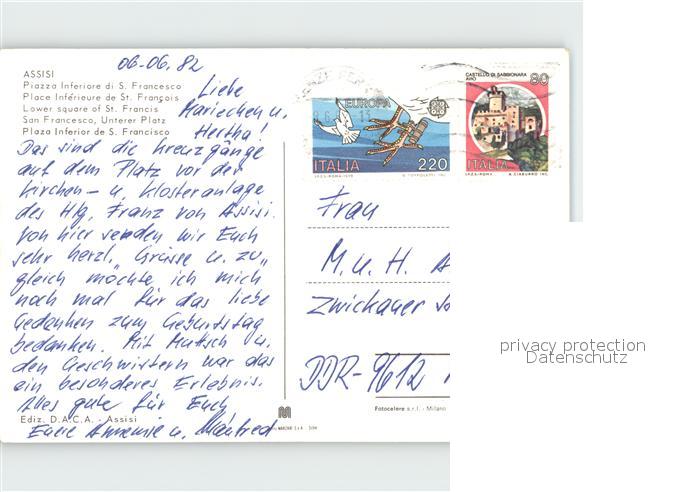 ASSISI
Piazza Inferiore di S. Francesco
Place Inférieure de St. François
Lower square of St. Francis
San Francesco, Unterer Platz
Plaza Inferior de S. Francisco
06-06.82
Liebe
Mariechen u.
Hertha!
Das sind die Kreuzgänge
auf dem Platz vor der
Kirchen- u. Klosteranlage
des Hlg. Franz von Assisi.
Von hier senden wir Euch
sehr herzl. Grüsse u. zu-
gleich möchte ich mich
noch mal für das liebe
Gedenken zum Geburtstag
bedanken. Mit Muttsch u.
den Geschwistern war das
ein besonderes Erlebnis.
Alles gute für Euch
Eure Annemie u. Manfred
Ediz. D.A.C.A. - Assisi
EUROPA
ITALIA 220
I.P.Z.S.-ROMA-1979
CASTELLO DI SABBIONARA
AVIO
80
ITALIA
I.P.Z.S.-ROMA
Frau
M. u. H.
Zwickauer
DDR-9612
Fotocelere s.r.l. - Milano
privacy protection
Datenschutz